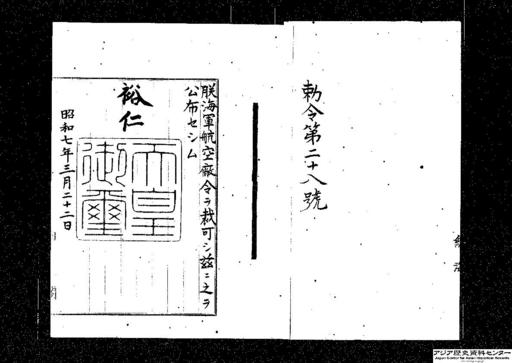 勅令第二十八號
朕海軍航空廠令ヲ裁可シ茲ニ之ヲ
公布セシム
裕仁
天皇
御璽
昭和七年三月二十二日
アジア歴史資料センター
Japan Center for Asian Historical Records